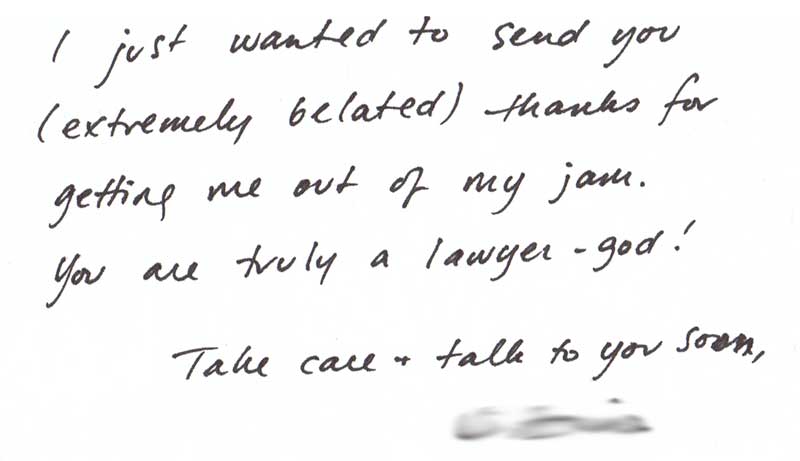 I just wanted to send you
(extremely belated) thanks for
getting me out of my jam.
You are truly a lawyer-god!
Take care + talk to you soon,